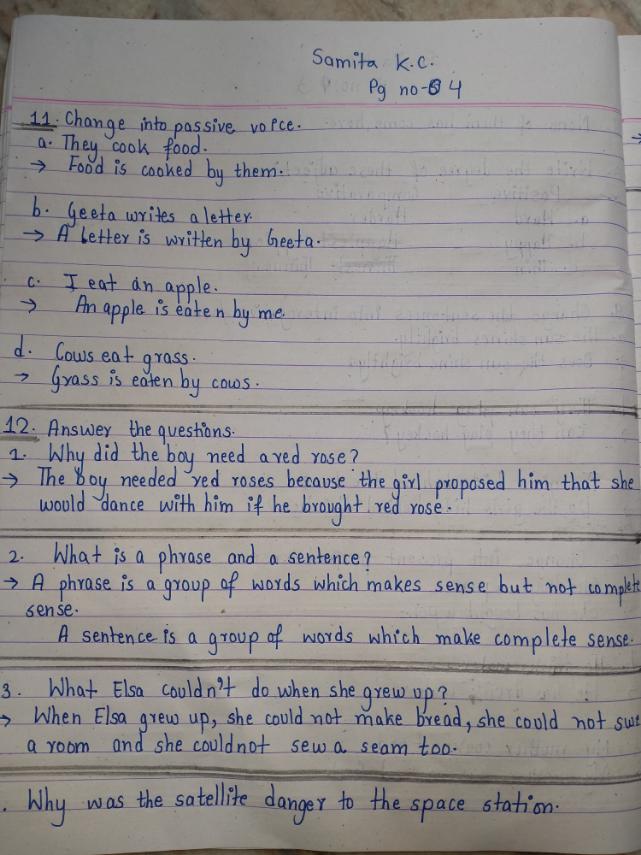 Samita K.C.
Pg no-4
11. Change into passive voice.
a. They cook food.
→ Food is cooked by them.
b. Geeta writes a letter.
→ A letter is written by Geeta.
c. I eat an apple.
→ An apple is eaten by me.
d. Cows eat grass.
→ Grass is eaten by cows.
12. Answer the questions.
1. Why did the boy need a red rose?
→ The boy needed red roses because the girl proposed him that she
would dance with him if he brought red rose.
2. What is a phrase and a sentence?
→ A phrase is a group of words which makes sense but not complete
sense.
A sentence is a group of words which make complete sense.
3. What Elsa couldn't do when she grew up?
→ When Elsa grew up, she could not make bread, she could not
a room and she couldnot sew a seam too.
. Why was the satellite danger to the space station.